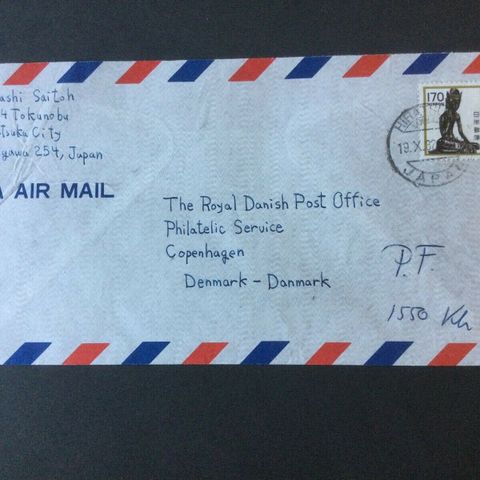 ashi Saitoh
4 Tokunobu
tsuka City
gawa 254, Japan
AIR MAIL
The Royal Danish Post Office
Philatelic Service
Copenhagen
Denmark - Danmark
P.F.
1550 Kh
170
日本郵便
19.X.
JAPAN